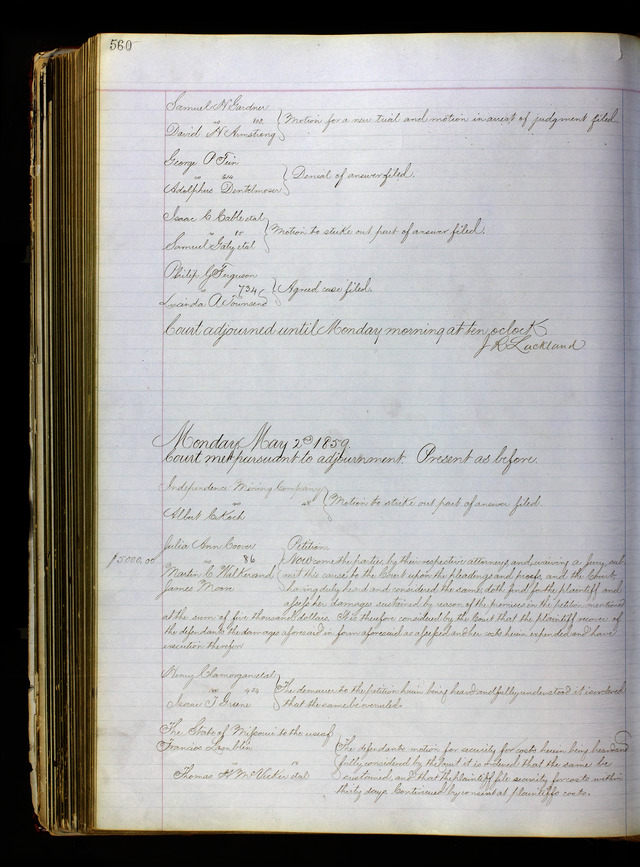 560
Samuel N Gardner
vs
David N Armstrong } Motion for a new trial and motion in arrest of judgment filed
George A
vs
Adolphus } Denial of answer filed.
Isaac C Cable etal
vs
Samuel Gaty etal } Motion to strike out part of answer filed.
Philip G Ferguson
vs 734
Lucinda A Townsend } Agreed case filed.
Court adjourned until Monday morning at ten oclock
J R Lackland
Monday May 2d 1859
Court met pursuant to adjournment. Present as before.
Independence Mining Company
vs
Albert C Koch } Motion to strike out part of answer filed
Julia Ann Coover Petition.
$5000.00 vs 86 Now come the parties by their respective attorneys and waiving a Jury, sub
Martin C and mit this cause to the Court upon the pleadings and proofs, and the Court
James More having duly heard and considered the same, doth find for the plaintiff and
assess her damages sustained by reason of the premises in the petition mentioned
at the sum of five thousand dollars. It is therefore considered by the Court that the plaintiff recover of
the defendants the damages aforesaid in form aforesaid as assessed and her costs herein expended and have
execution therefor
Henry Clamorgan etal
vs
Isaac T Greene } The demurrer to the petition herein being heard and fully understood it is ordered
that the same be overruled.
The State of Missouri to the use of
Francois The defendants motion for security for costs herein being heard and
vs fully considered by the Court it is ordered that the same be
Thomas etal sustained, and that the plaintiff file security for costs within
thirty days. Continued by consent at plaintiffs costs.